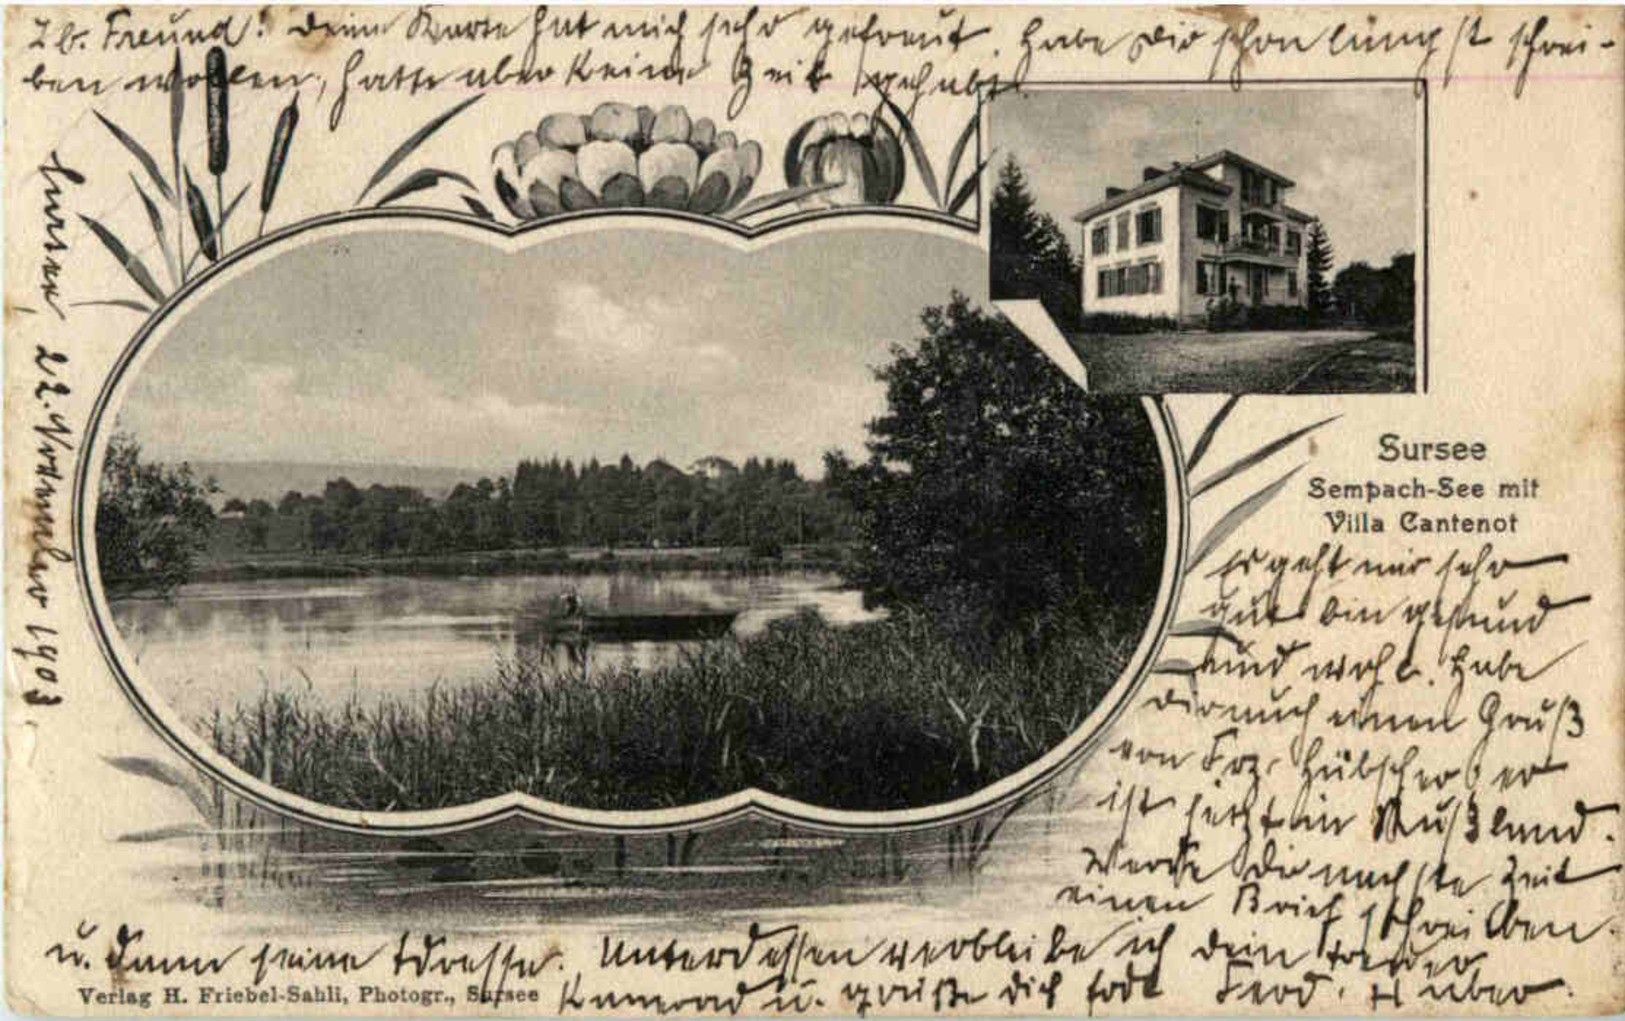 Lb. Freund! Deine Karte hat mich sehr gefreut. Habe Dir schon längst schrei-
ben wollen, hatte aber keine Zeit gehabt.
Sursee, 22. November 1903.
Sursee
Sempach-See mit
Villa Cantenot
Es geht mir sehr
gut bin gesund
und wohl. Habe
dir auch einen Gruß
von Frz. Hübscher, er
ist jetzt in Rußland.
Werde Dir nächste Zeit
einen Brief schreiben.
u. dann seine Adresse. Unterdessen verbleibe ich dein treuer
Kamerad u. grüße dich Ferd. Huber.
Verlag H. Friebel-Sahli, Photogr., Sursee